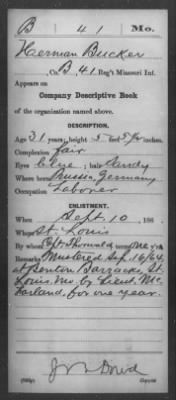 B | 41 | Mo.
Herman Bucker
, Co. B, 41 Reg't Missouri Inf.
Appears on
Company Descriptive Book
of the organization named above.
DESCRIPTION.
Age 31 years; height 5 feet 5 1/2 inches.
Complexion Fair
Eyes Blue; hair Sandy
Where born Prussia, Germany
Occupation Laborer
ENLISTMENT.
When Sept. 10, 186 .
Where St. Louis
By whom Capt. Thornald; term one y'rs.
Remarks Mustered Sep. 16/64,
at Benton Barracks St.
Louis, Mo. by Lieut. Mc-
Farland, for one year.
Copyist.